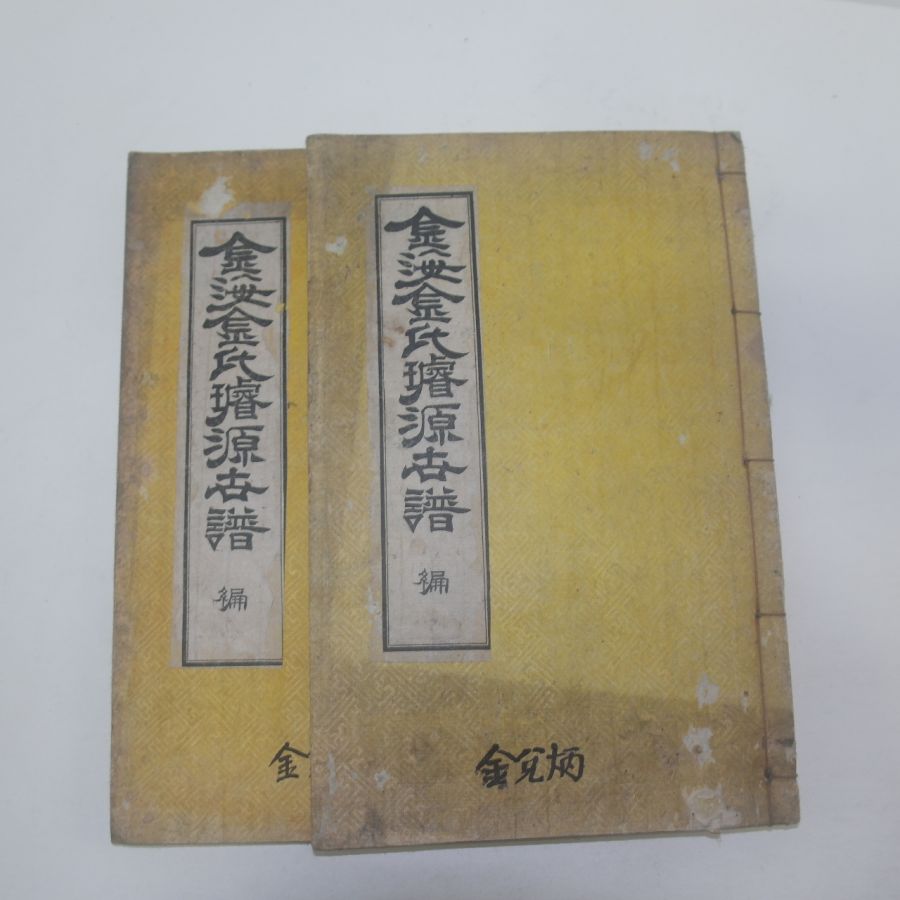 金海金氏璿源世譜
編
金兌炳
金海金氏璿源世譜
編
金